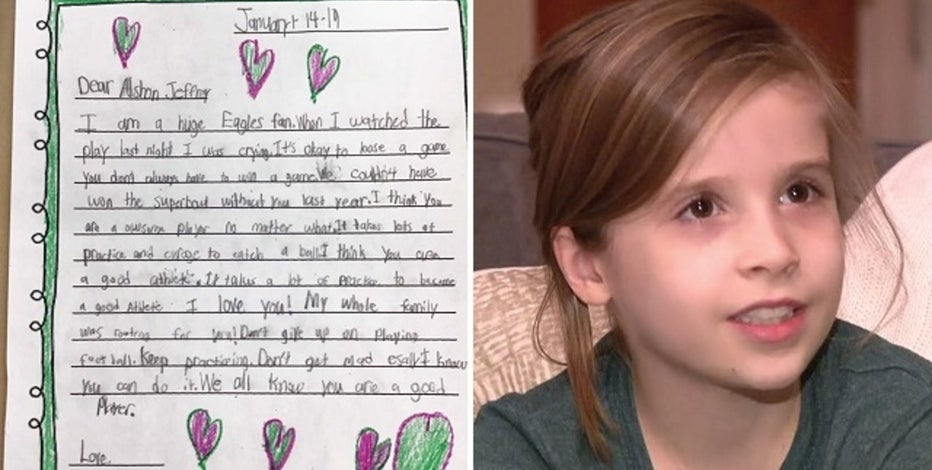 January 14-19
Dear Alshon Jeffry
I am a huge Eagles fan. When I watched the
play last night I was crying. It's okay to loose a game
you don't always have to win a game. We couldn't have
won the superbowl without you last year. I think you
are a awsome player no matter what. It takes lots of
practice and curage to catch a ball I think you are
a good athlete. It takes a lot of practice to become
a good Athlete. I love you! My whole family
was rooting for you! Don't give up on playing
football. Keep practicing. Don't get mad esally I know
you can do it. We all know you are a good
Player.
Love,